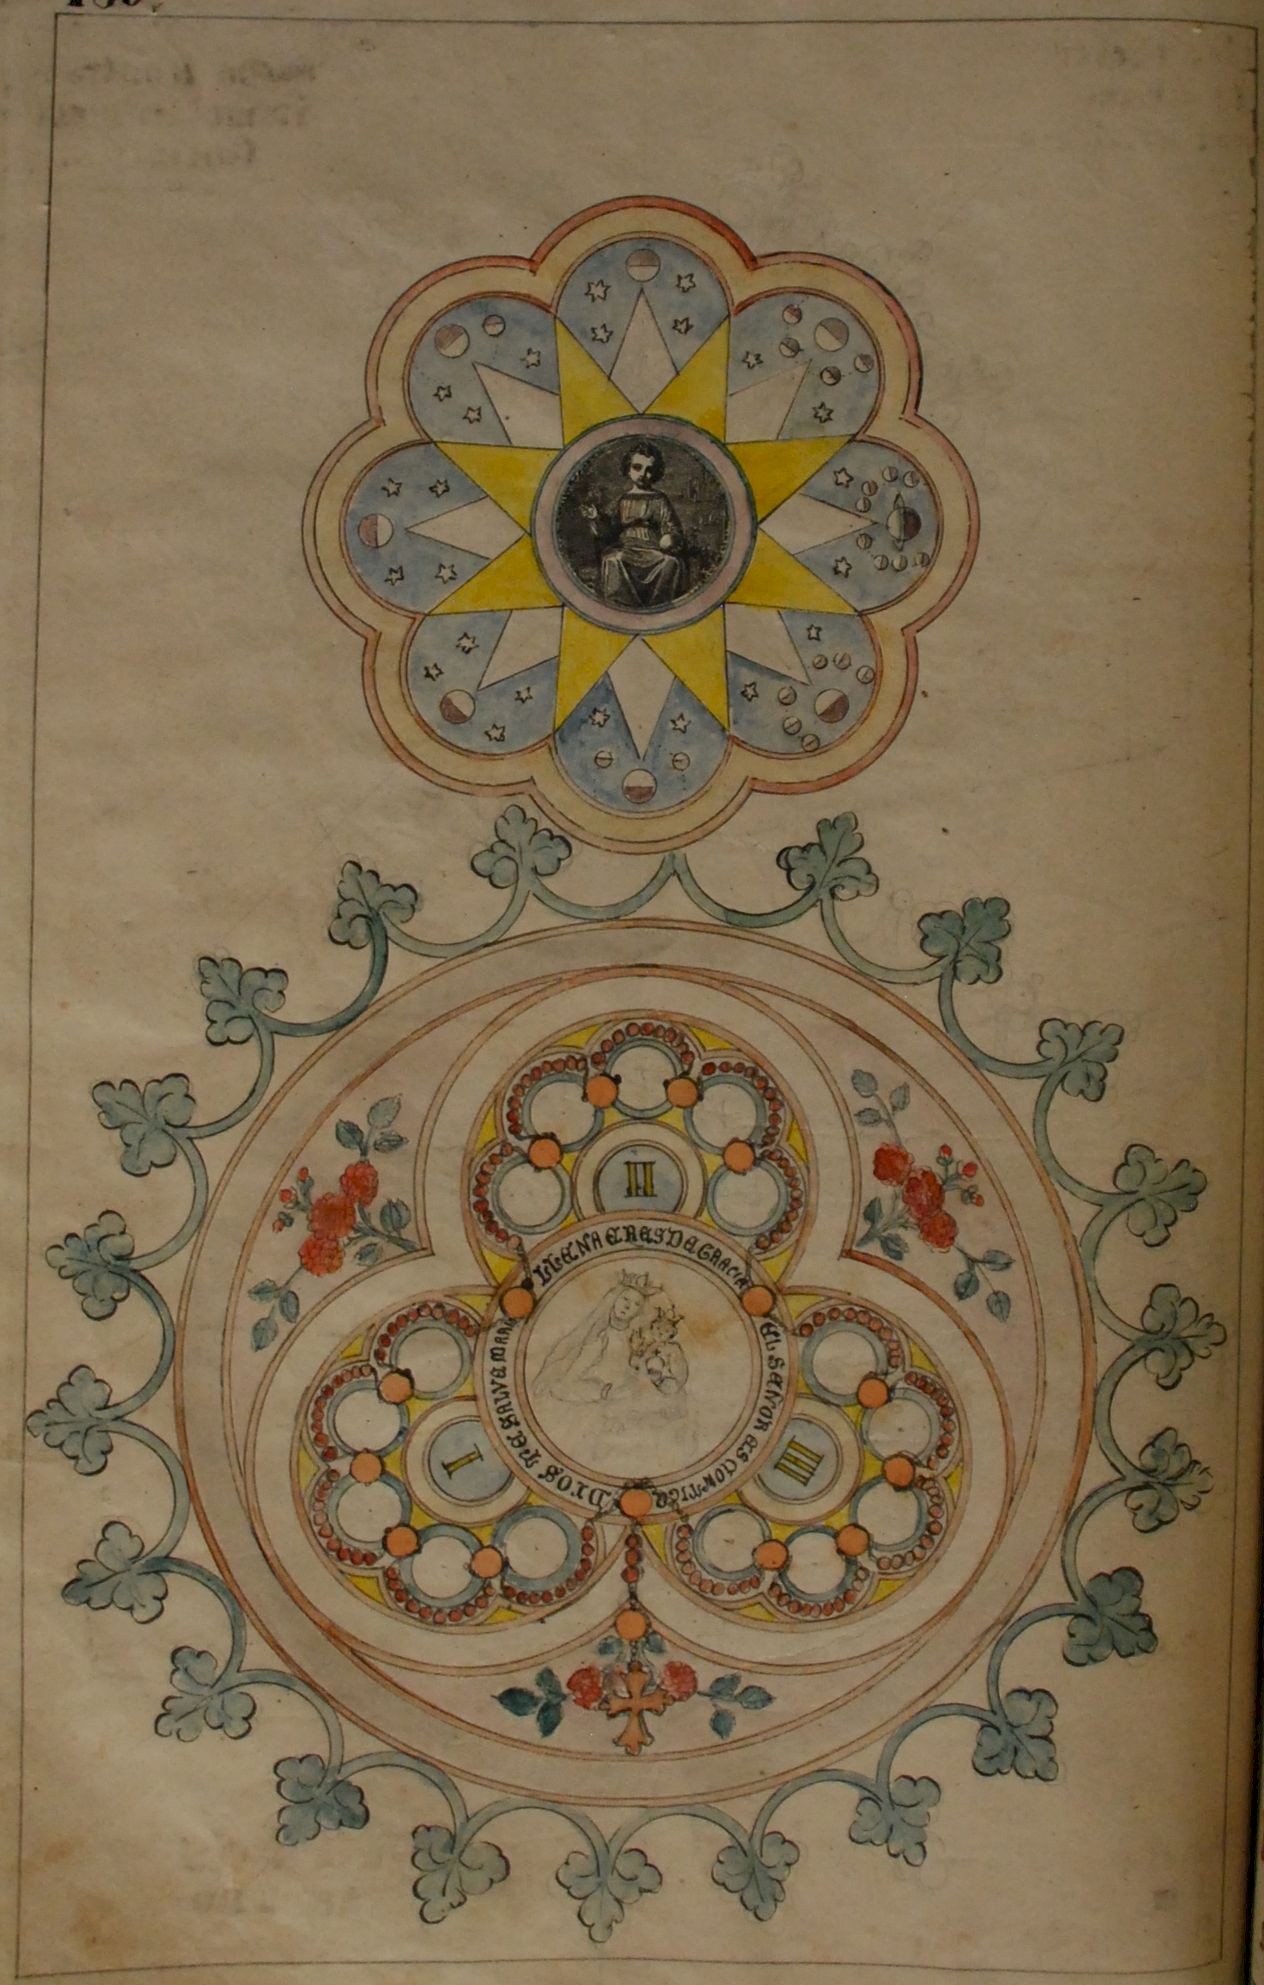 II
DIOS TE SALVE MARIA LLENA ERES DE GRACIA EL SEÑOR ES CONTIGO
I
III